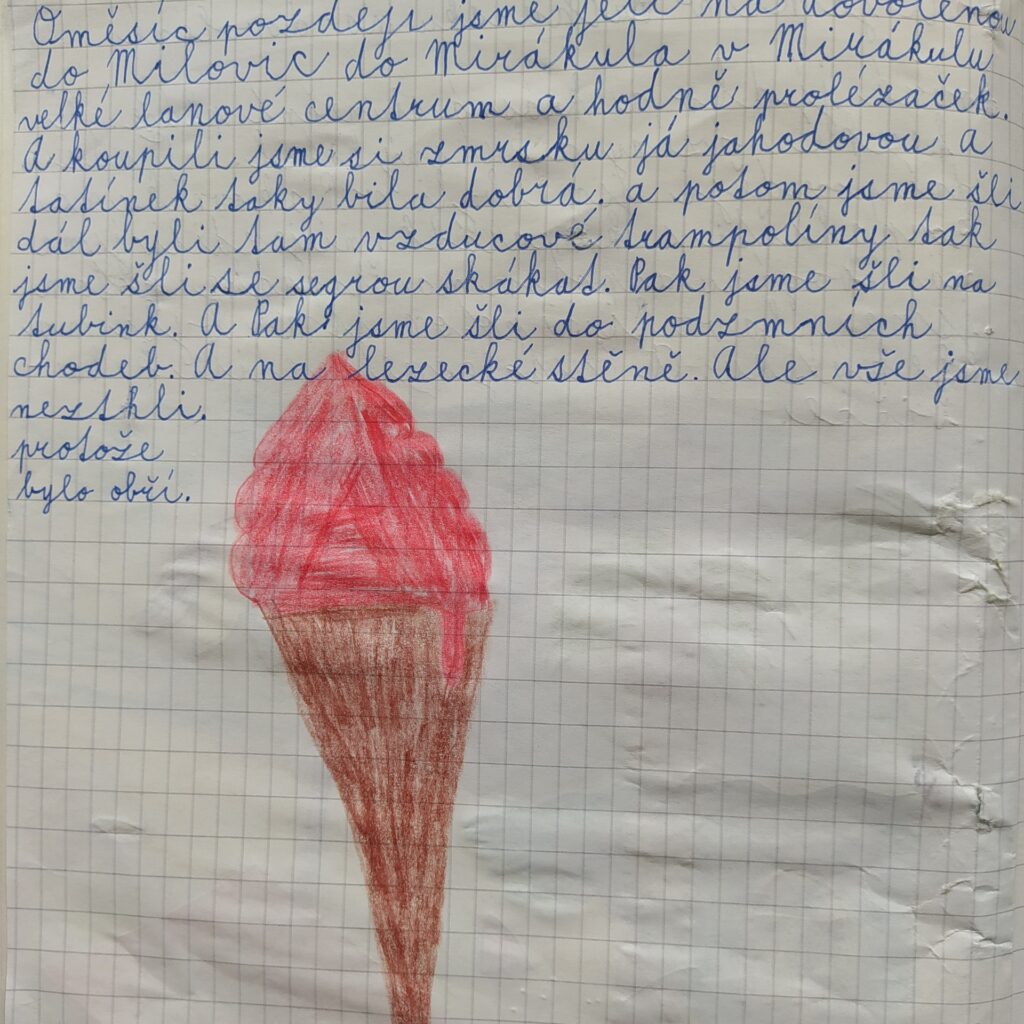 Oměsíc pozdeji jsme jeli na dovolenou
do Milovic do Mirákula v Mirákulu
velké lanové centrum a hodně prolézaček.
A koupili jsme si zmrsku já jahodovou a
tatínek taky bila dobrá. a potom jsme šli
dál byli tam vzducové trampolíny tak
jsme šli se segrou skákat. Pak jsme šli na
tubink. A Pak jsme šli do podzmních
chodeb. A na lezecké stěně. Ale vše jsme
nezthli.
protože
bylo obří.